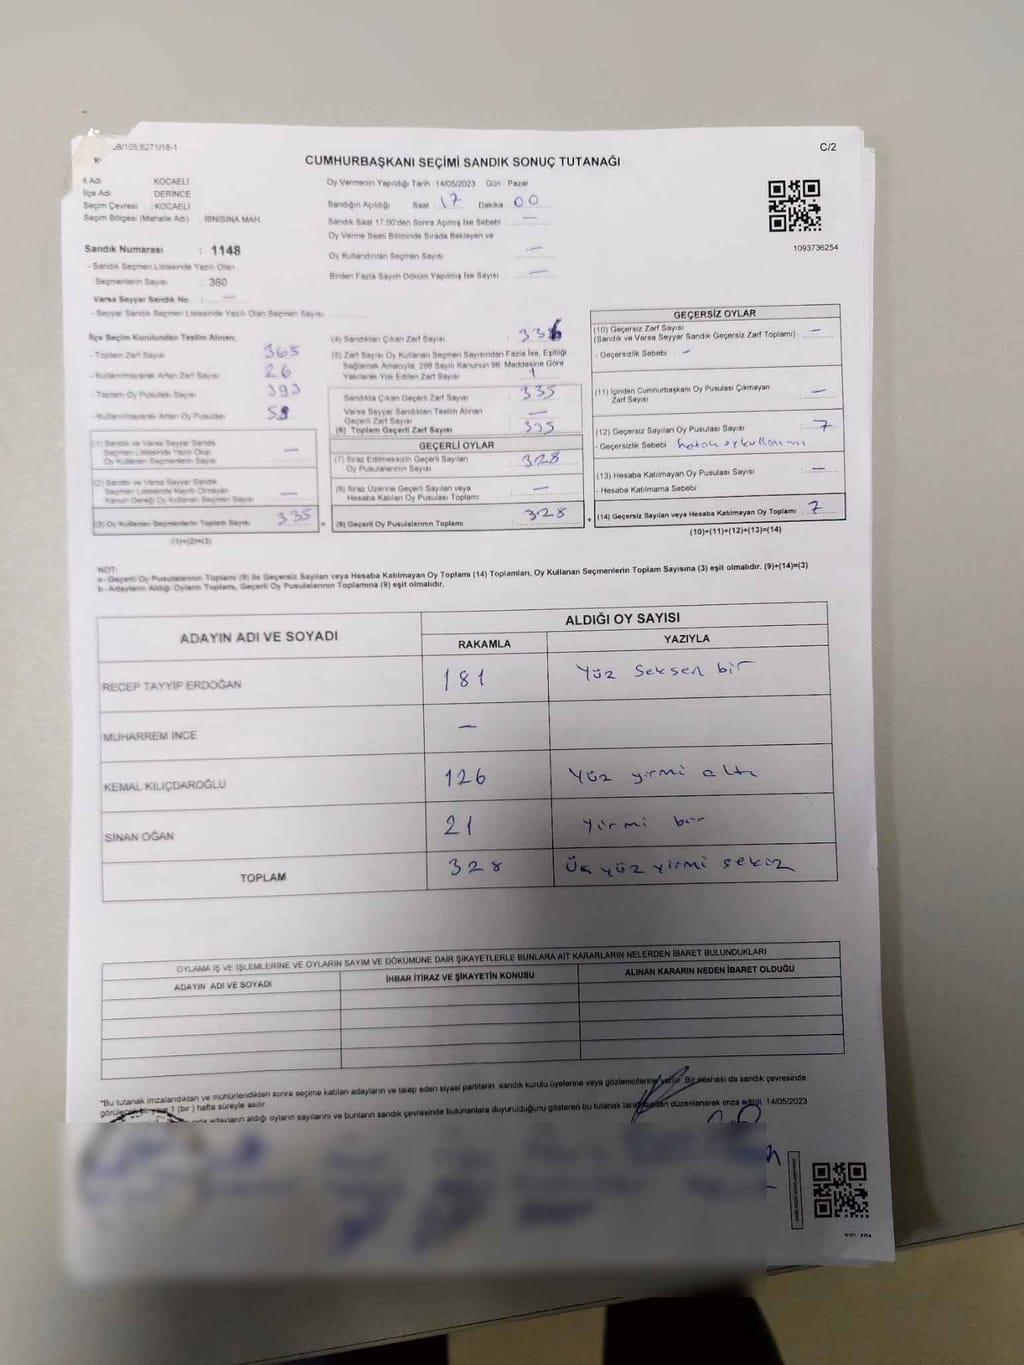 C/2
CUMHURBAŞKANI SEÇİMİ SANDIK SONUÇ TUTANAĞI
İl Adı : KOCAELİ
İlçe Adı : DERİNCE
Seçim Çevresi : KOCAELİ
Seçim Bölgesi (Mahalle Adı) : İBNİSİNA MAH.
Sandık Numarası : 1148
- Sandık Seçmen Listesinde Yazılı Olan
Seçmenlerin Sayısı : 360
Varsa Seyyar Sandık No : —
- Seyyar Sandık Seçmen Listesinde Yazılı Olan Seçmen Sayısı :
Oy Vermenin Yapıldığı Tarih : 14/05/2023 Gün : Pazar
Sandığın Açıldığı Saat 17 Dakika 00
Sandık Saat 17:00'den Sonra Açılmış İse Sebebi : —
Oy Verme Saati Bitiminde Sırada Bekleyen ve
Oy Kullandırılan Seçmen Sayısı : —
Birden Fazla Sayım Döküm Yapılmış İse Sayısı : —
1093736254
İlçe Seçim Kurulundan Teslim Alınan;
- Toplam Zarf Sayısı : 365
- Kullanılmayarak Artan Zarf Sayısı : 26
- Toplam Oy Pusulası Sayısı : 393
- Kullanılmayarak Artan Oy Pusulası :
(1) Sandık ve Varsa Seyyar Sandık
Seçmen Listesinde Yazılı Olup
Oy Kullanan Seçmenlerin Sayısı : —
(2) Sandık ve Varsa Seyyar Sandık
Seçmen Listesinde Kayıtlı Olmayan
Kanun Gereği Oy Kullanan Seçmen Sayısı : —
(3) Oy Kullanan Seçmenlerin Toplam Sayısı : 335
(1)+(2)=(3)
(4) Sandıktan Çıkan Zarf Sayısı : 336
(5) Zarf Sayısı Oy Kullanan Seçmen Sayısından Fazla İse, Eşitliği
Sağlamak Amacıyla, 298 Sayılı Kanunun 98. Maddesine Göre
Yakılarak Yok Edilen Zarf Sayısı : 1
Sandıkta Çıkan Geçerli Zarf Sayısı : 335
Varsa Seyyar Sandıktan Teslim Alınan
Geçerli Zarf Sayısı : —
(6) Toplam Geçerli Zarf Sayısı : 335
GEÇERLİ OYLAR
(7) İtiraz Edilmeksizin Geçerli Sayılan
Oy Pusulalarının Sayısı : 328
(8) İtiraz Üzerine Geçerli Sayılan veya
Hesaba Katılan Oy Pusulası Toplamı : —
(9) Geçerli Oy Pusulalarının Toplamı : 328
GEÇERSİZ OYLAR
(10) Geçersiz Zarf Sayısı
(Sandık ve Varsa Seyyar Sandık Geçersiz Zarf Toplamı) : —
- Geçersizlik Sebebi : —
(11) İçinden Cumhurbaşkanı Oy Pusulası Çıkmayan
Zarf Sayısı : —
(12) Geçersiz Sayılan Oy Pusulası Sayısı : 7
- Geçersizlik Sebebi : hatalı oy kullanımı
(13) Hesaba Katılmayan Oy Pusulası Sayısı : —
- Hesaba Katılmama Sebebi :
(14) Geçersiz Sayılan veya Hesaba Katılmayan Oy Toplamı : 7
(10)+(11)+(12)+(13)=(14)
NOT:
a- Geçerli Oy Pusulalarının Toplamı (9) ile Geçersiz Sayılan veya Hesaba Katılmayan Oy Toplamı (14) Toplamları, Oy Kullanan Seçmenlerin Toplam Sayısına (3) eşit olmalıdır. (9)+(14)=(3)
b- Adayların Aldığı Oyların Toplamı, Geçerli Oy Pusulalarının Toplamına (9) eşit olmalıdır.
ADAYIN ADI VE SOYADI
ALDIĞI OY SAYISI
RAKAMLA YAZIYLA
RECEP TAYYİP ERDOĞAN 181 Yüz seksen bir
MUHARREM İNCE —
KEMAL KILIÇDAROĞLU 126 Yüz yirmi altı
SİNAN OĞAN 21 Yirmi bir
TOPLAM 328 Üç yüz yirmi sekiz
OYLAMA İŞ VE İŞLEMLERİNE VE OYLARIN SAYIM VE DÖKÜMÜNE DAİR ŞİKAYETLERLE BUNLARA AİT KARARLARIN NELERDEN İBARET BULUNDUKLARI
ADAYIN ADI VE SOYADI İHBAR İTİRAZ VE ŞİKAYETİN KONUSU ALINAN KARARIN NEDEN İBARET OLDUĞU
*Bu tutanak imzalandıktan ve mühürlendikten sonra seçime katılan adayların ve talep eden siyasi partilerin sandık kurulu üyelerine veya gözlemcilerine verilir. Bir nüshası da sandık çevresinde
görülecek bir yere 1 (bir) hafta süreyle asılır.
adayların aldığı oyların sayılarını ve bunların sandık çevresinde bulunanlara duyurulduğunu gösteren bu tutanak tarafımızdan düzenlenerek imza edildi. 14/05/2023